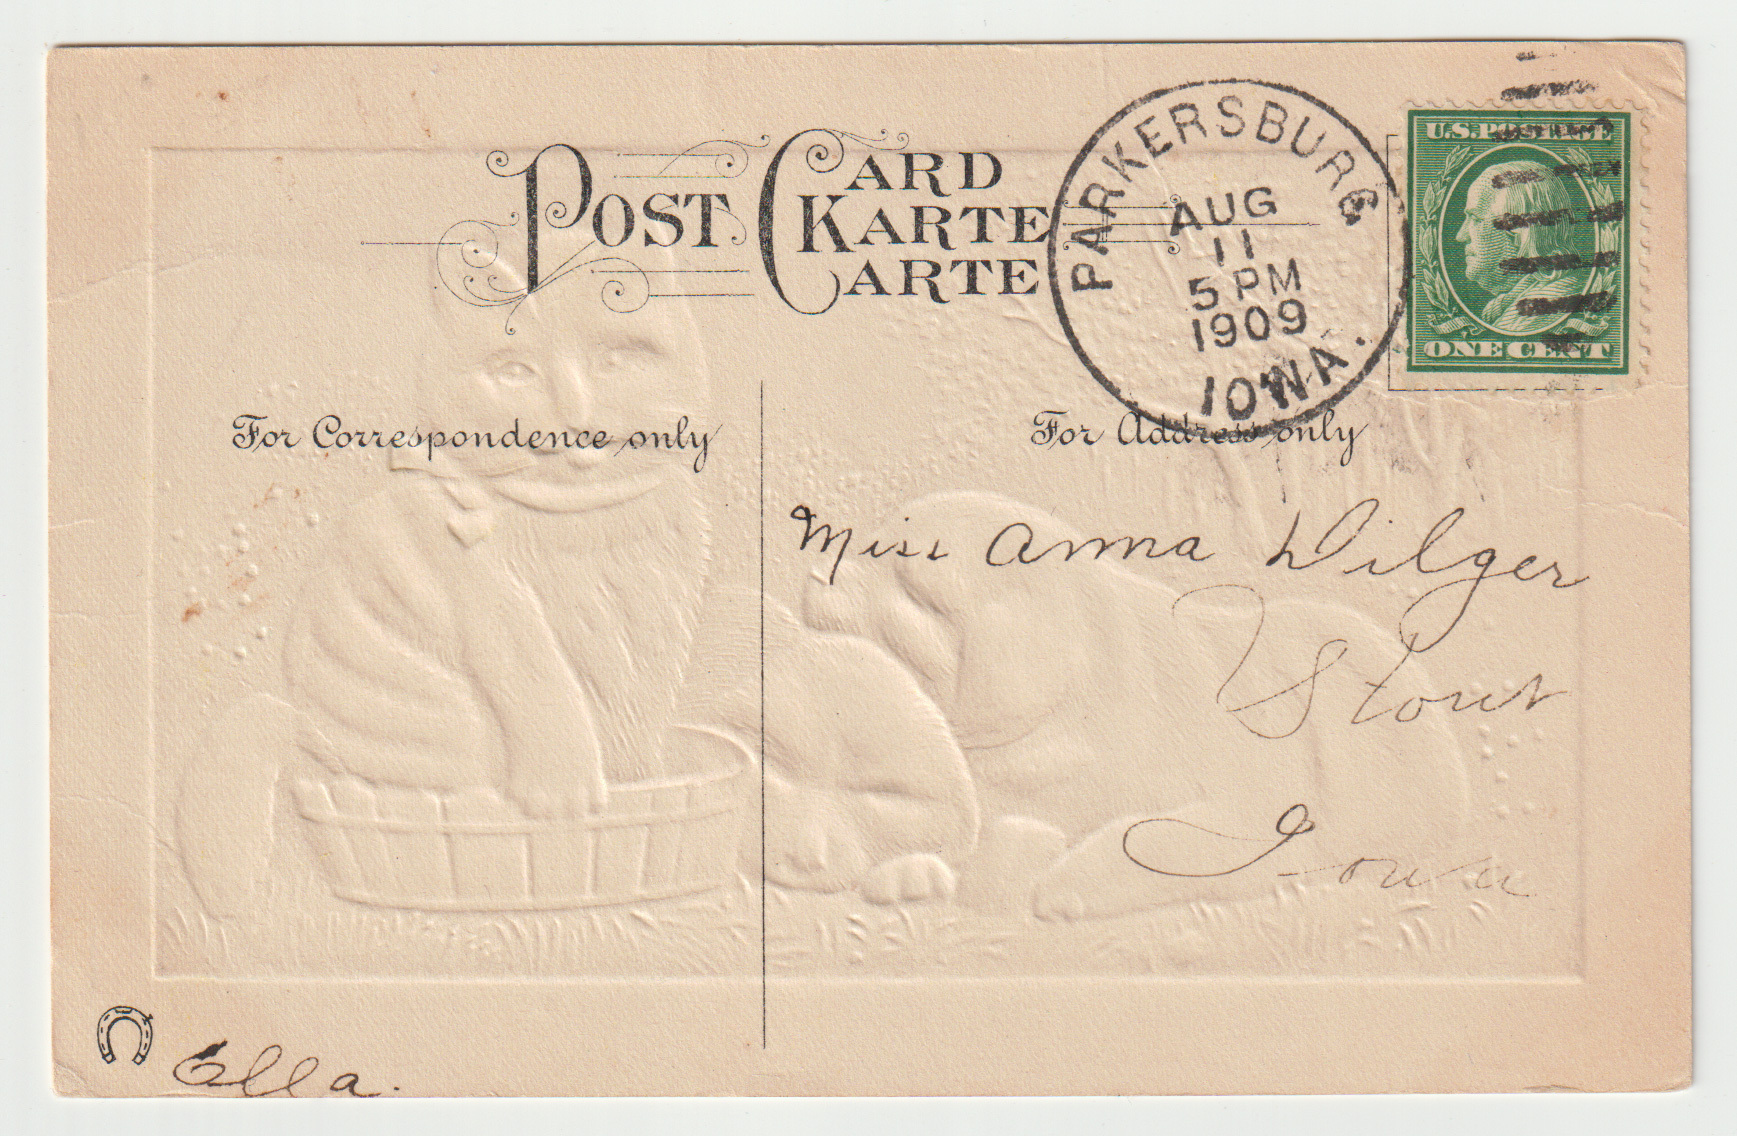 POST CARD
KARTE
CARTE
PARKERSBURG
AUG
11
5 PM
1909
IOWA.
U.S. POSTAGE
ONE CENT
For Correspondence only
For Address only
Miss Anna Dilger
Stout
Iowa
Ella.